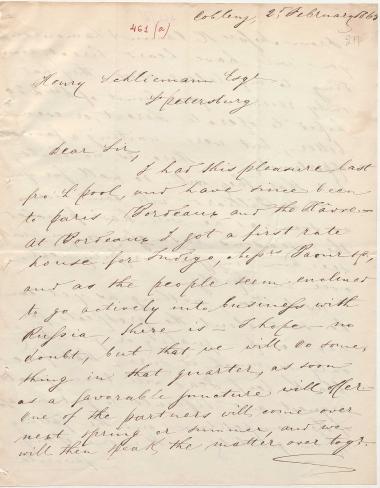 461 (a)
Coblenz, 2 February 1863
Henry Schliemann Esqr
St petersburg
Dear Sir,
I had this pleasure last
pro. L'pool, and have since been
to Paris, Bordeaux and the
At Bordeaux I got a first rate
house for Indigo,
and as the people seem inclined
to go actively into business with
Russia, there is - I hope - no
doubt, but that we will do some,
thing in that quarter, as soon
as a favorable juncture will offer
One of the partners will come over
next spring or summer, and we
will then speak the matter over togr.